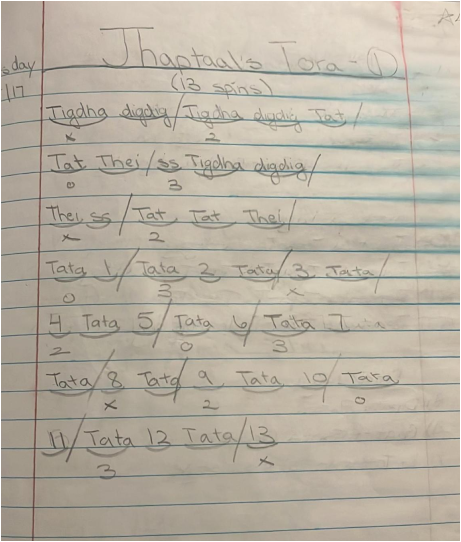 Jhaptaal's Tora - ①
(13 spins)
day
/17
Tigdha digdig/Tigdha digdig Tat/
x 2
Tat Thei/ss Tigdha digdig/
0 3
Thei ss/Tat Tat Thei/
x 2
Tata 1/Tata 2 Tata/3 Tata/
0 3 x
4 Tata 5/Tata 6/Tata 7
2 0 3
Tata/8 Tata/9 Tata 10/Tata
x 2 0
11/Tata 12 Tata/13
3 x